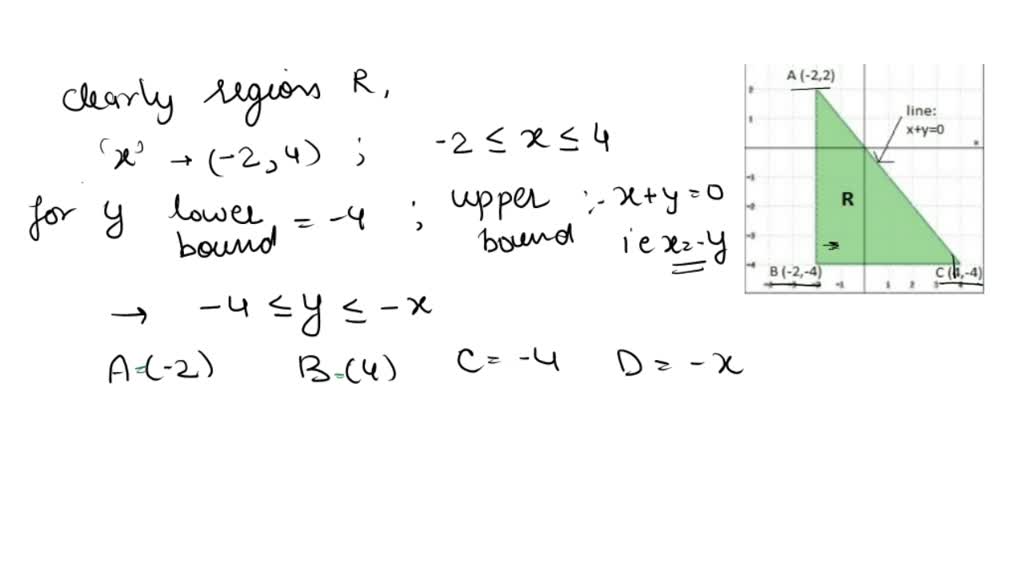 clearly regions R,
'x' → (-2,4) ; -2 ≤ x ≤ 4
for y lower bound = -4 ; upper bound :- x+y=0
i.e x=-y
→ -4 ≤ y ≤ -x
A=(-2) B=(4) C= -4 D= -x
A (-2,2)
line:
x+y=0
R
B (-2,-4)
C (4,-4)